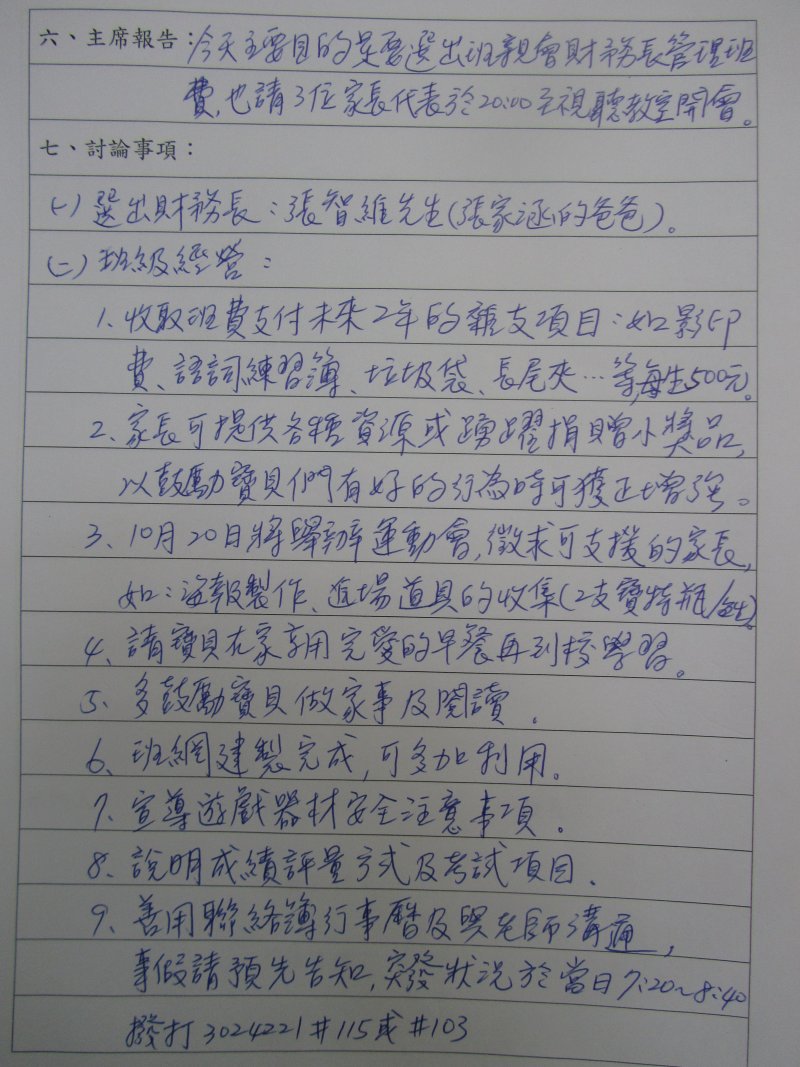 六、主席報告：今天主要目的是要選出班親會財務長管理班
費，也請3位家長代表於20:00至視聽教室開會。
七、討論事項：
(一)選出財務長：張智維先生(張家涵的爸爸)。
(二)班級經營：
1、收取班費支付未來2年的雜支項目：如影印
費、語詞練習簿、垃圾袋、長尾夾…等，每生500元。
2、家長可提供各種資源或踴躍捐贈小獎品，
以鼓勵寶貝們有好的行為時可獲正增強。
3、10月20日將舉辦運動會，徵求可支援的家長，
如：海報製作、進場道具的收集(2支寶特瓶/每生)。
4、請寶貝在家享用完愛的早餐再到校學習。
5、多鼓勵寶貝做家事及閱讀。
6、班網建製完成，可多加利用。
7、宣導遊戲器材安全注意事項。
8、說明成績評量方式及考試項目。
9、善用聯絡簿行事曆及與老師溝通，
事假請預先告知，突發狀況於當日7:20~8:40
撥打3024221#115或#103